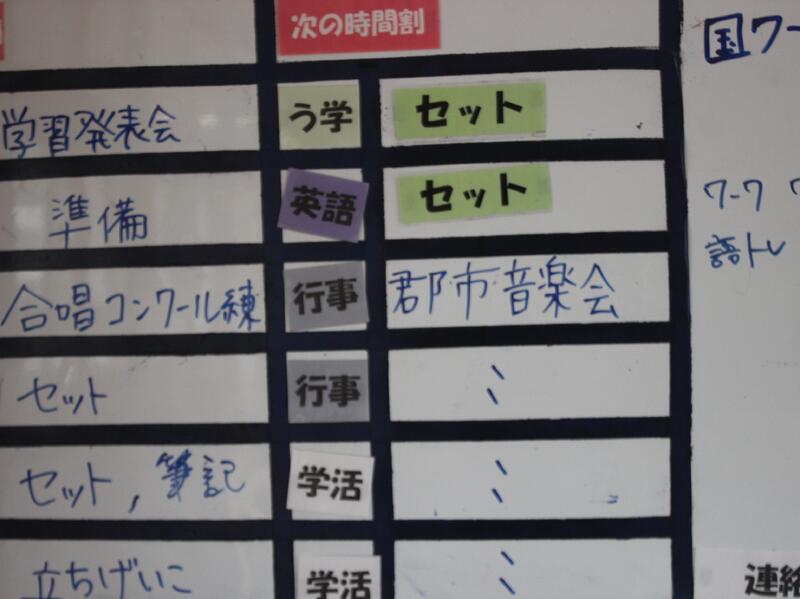 次の時間割
国ワー
学習発表会 う学 セット
準備 英語 セット
ワーク
語トレ
合唱コンクール練 行事 郡市音楽会
セット 行事 〃
セット, 筆記 学活 〃
立ちげいこ 学活 〃
連絡